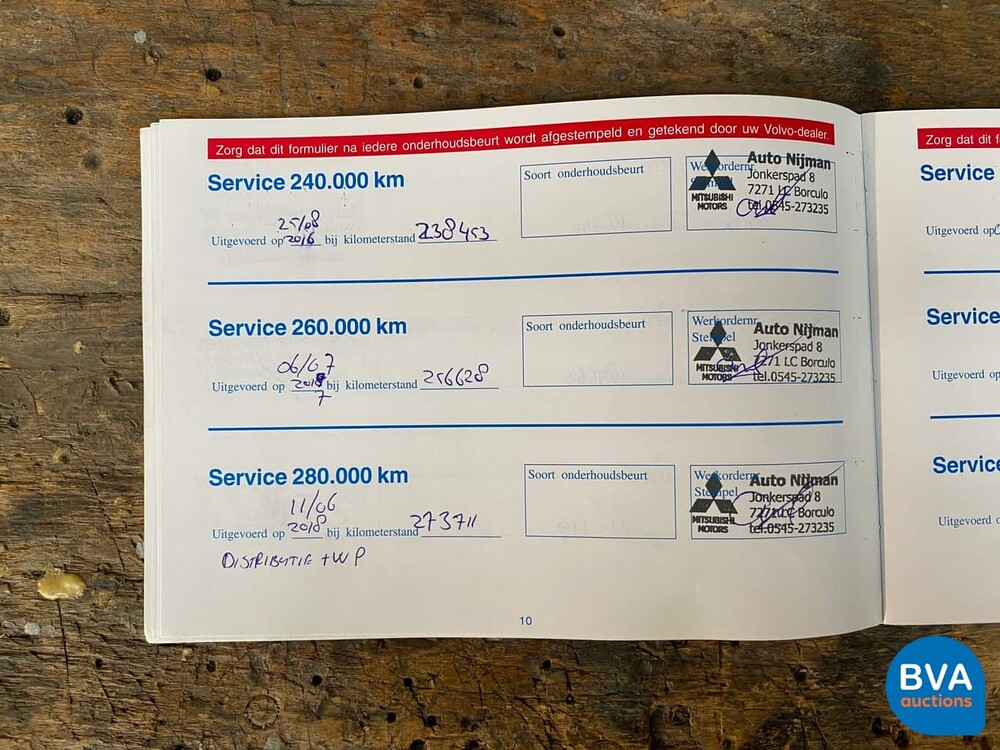 Zorg dat dit formulier na iedere onderhoudsbeurt wordt afgestempeld en getekend door uw Volvo-dealer.
Service 240.000 km
Soort onderhoudsbeurt
Werkordernr.
Stempel
MITSUBISHI
MOTORS
Auto Nijman
Jonkerspad 8
7271 LC Borculo
tel.0545-273235
25/08
Uitgevoerd op 2016 bij kilometerstand 238453
Service 260.000 km
Soort onderhoudsbeurt
Werkordernr.
Stempel
MITSUBISHI
MOTORS
Auto Nijman
Jonkerspad 8
7271 LC Borculo
tel.0545-273235
06/07
Uitgevoerd op 2018 bij kilometerstand 256628
7
Service 280.000 km
Soort onderhoudsbeurt
Werkordernr.
Stempel
MITSUBISHI
MOTORS
Auto Nijman
Jonkerspad 8
7271 LC Borculo
tel.0545-273235
11/06
Uitgevoerd op 2018 bij kilometerstand 273711
DISTRIBUTIE + WP
10
Zorg dat dit f
Service
Uitgevoerd op
Service
Uitgevoerd op
Service
Uitgevoerd o
BVA
auctions